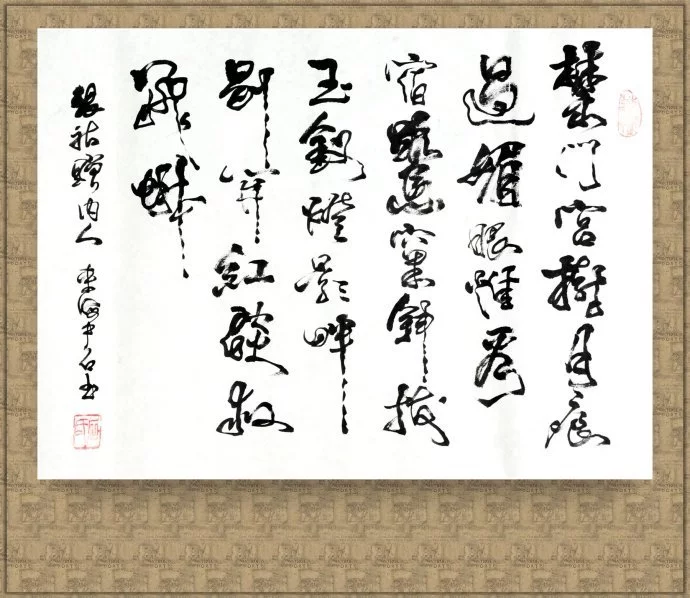 禁門宮樹月痕
過媚眼惟看
宿鷺窠斜拔
玉釵燈影畔
剔開紅燄救
飛蛾
張祜贈內人 東海中石書